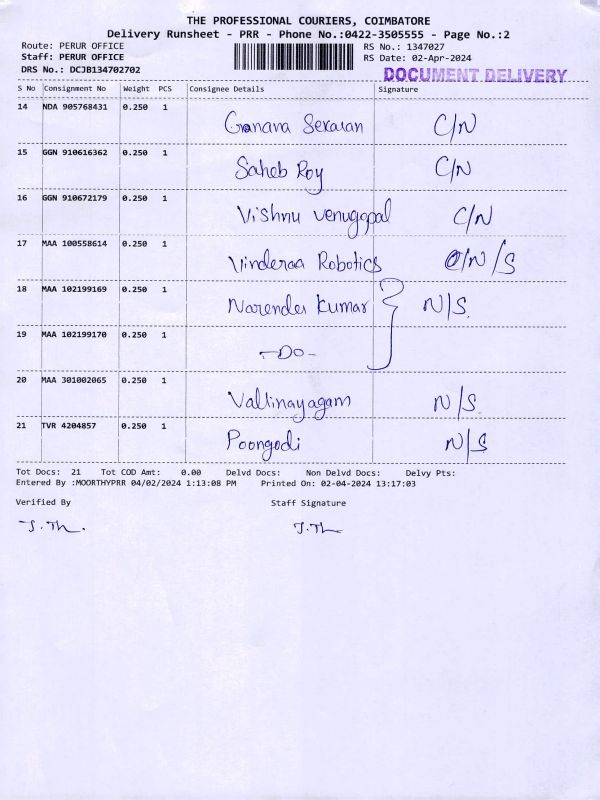 THE PROFESSIONAL COURIERS, COIMBATORE
Delivery Runsheet - PRR - Phone No.:0422-3505555 - Page No.:2
Route: PERUR OFFICE RS No.: 1347027
Staff: PERUR OFFICE RS Date: 02-Apr-2024
DRS No.: DCJB134702702 DOCUMENT DELIVERY
S No Consignment No Weight PCS Consignee Details Signature
14 NDA 905768431 0.250 1
Gnana Sekaran C/N
15 GGN 910616362 0.250 1
Saheb Roy C/N
16 GGN 910672179 0.250 1
Vishnu venugopal C/N
17 MAA 100558614 0.250 1
Vinderaa Robotics C/N/S
18 MAA 102199169 0.250 1
Narender kumar N/S.
19 MAA 102199170 0.250 1
-Do-
20 MAA 301002065 0.250 1
Vallinayagam N/S.
21 TVR 4204857 0.250 1
Poongodi N/S
Tot Docs: 21 Tot COD Amt: 0.00 Delvd Docs: Non Delvd Docs: Delvy Pts:
Entered By :MOORTHYPRR 04/02/2024 1:13:08 PM Printed On: 02-04-2024 13:17:03
Verified By Staff Signature